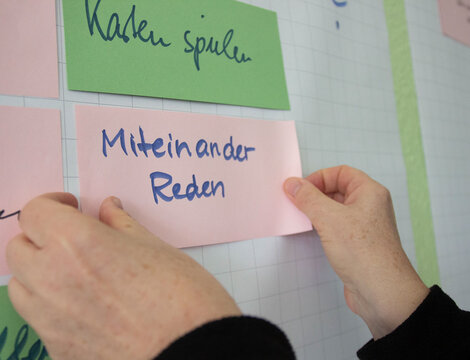 Karten spielen
Miteinander
Reden